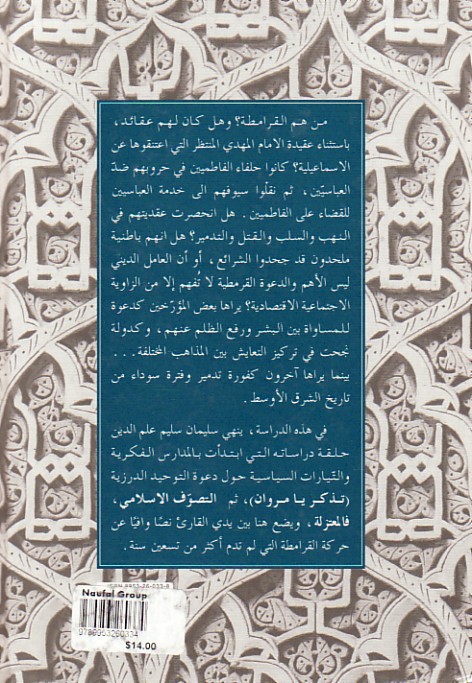 من هم القرامطة؟ وهل كان لهم عقائد،
باستثناء عقيدة الامام المهدي المنتظر التي اعتنقوها عن
الاسماعيلية؟ كانوا حلفاء الفاطميين في حروبهم ضدّ
العباسيّين، ثم نقلوا سيوفهم الى خدمة العباسيين
للقضاء على الفاطميين. هل انحصرت عقديتهم في
النهب والسلب والقتل والتدمير؟ هل انهم باطنية
ملحدون قد جحدوا الشرائع، أو أن العامل الدينيّ
ليس الأهم والدعوة القرمطية لا تُفهم إلا من الزاوية
الاجتماعية الاقتصادية؟ يراها بعض المؤرّخين كدعوة
للمساواة بين البشر ورفع الظلم عنهم، وكدولة
نجحت في تركيز التعايش بين المذاهب المختلفة...
بينما يراها آخرون كفورة تدمير وفترة سوداء من
تاريخ الشرق الأوسط.
في هذه الدراسة، ينهي سليمان سليم علم الدين
حلقة دراساته التي ابتدأت بالمدارس الفكرية
والتيارات السياسية حول دعوة التوحيد الدرزية
(تذكر يا مروان)، ثم التصوّف الاسلامي،
فالمعتزلة، ويضع هنا بين يدي القارئ نصًا وافيًا عن
حركة القرامطة التي لم تدم أكثر من تسعين سنة.
ISBN 9953-26-033-8
Naufal Group
9789953260334
$14.00